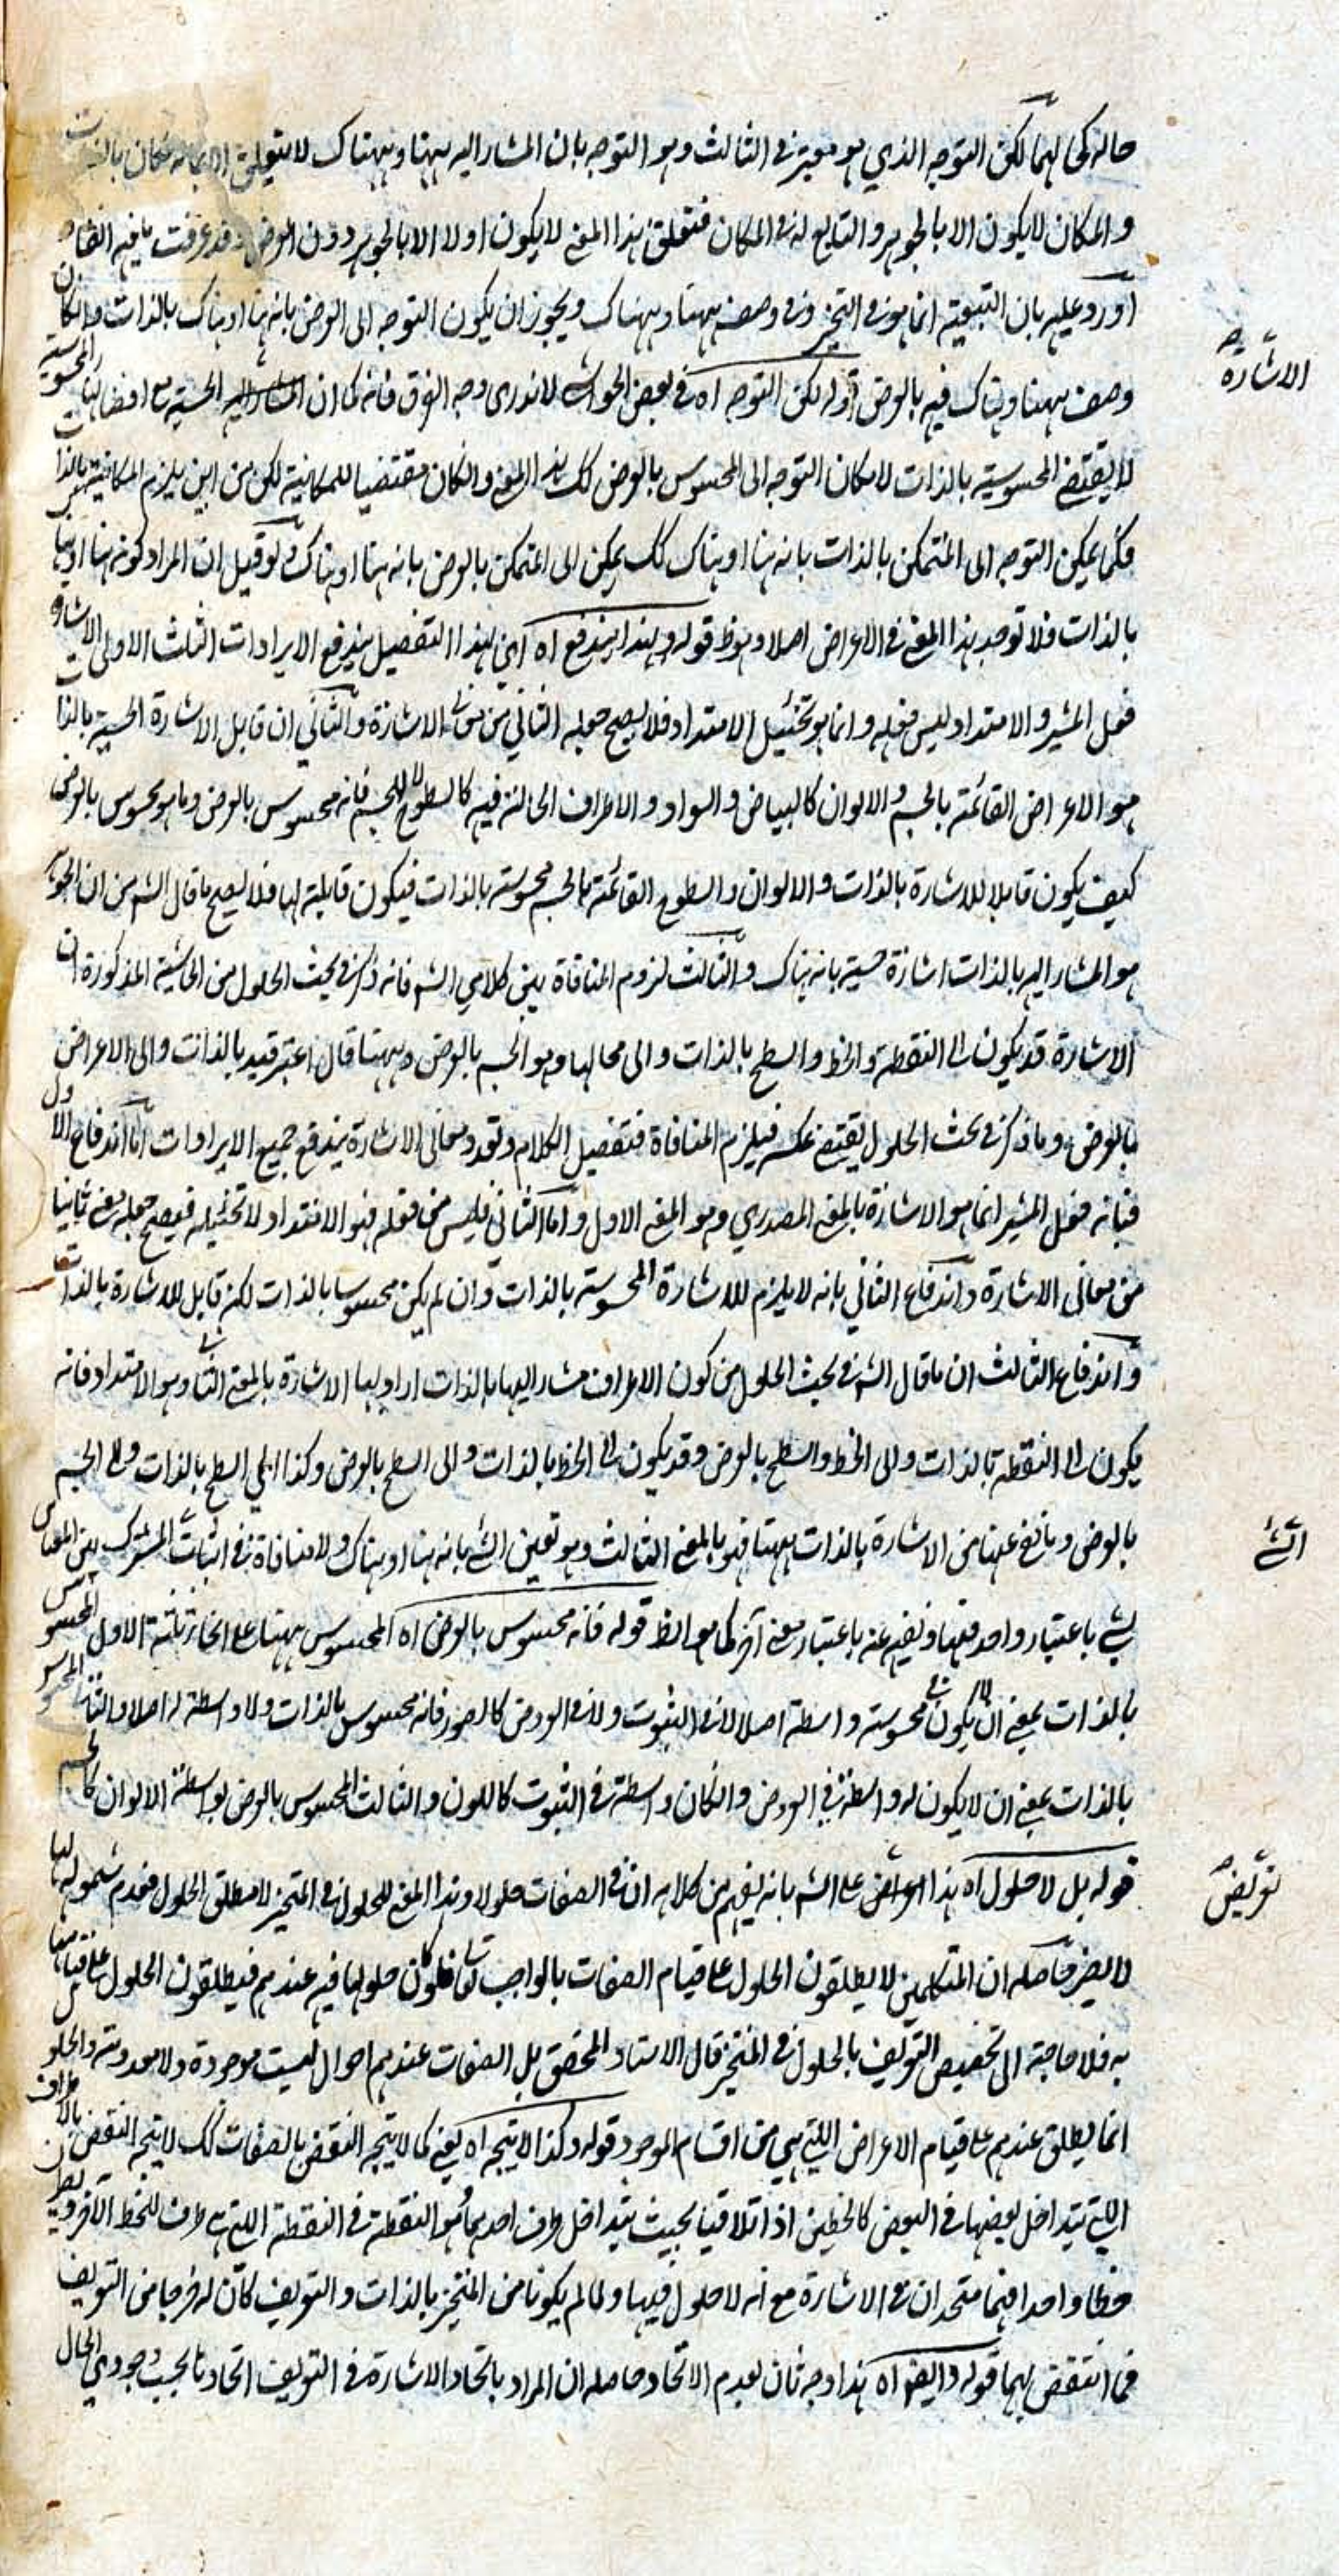 حاله كما لهما لكن التوجه الذي هو معتبر في الثالث وهو التوجه بان المشار اليه ههنا وههناك لا يتعلق اولا بما له مكان بالذات
و المكان لا يكون الا بالجوهر والتابع له في المكان فتعلق هذا المعنى لا يكون اولا الا بالجوهر دون العرض وقد عرفت ما فيه
اورد عليه بان التبعية انما هو في التحيز وفي وصف ههنا وههناك ويجوز ان يكون التوجه الى العرض بانه هنا او هناك بالذات وانكان
وصف ههنا وهناك فيه بالعرض قوله لكن التوجه اه في بعض الحواشي لا ندري وجه الفرق فانه كما ان الاشارة الحسية مع اقتضائها المحسوسية
لا يقتضي المحسوسية بالذات لامكان التوجه الى المحسوس بالعرض كك هذا المعنى وانكان مقتضيا للمكانية لكن من اين يلزم المكانية بالذات
فكما يمكن التوجه الى المتمكن بالذات بانه هنا او هناك كك يمكن الى المتمكن بالعرض بانه هنا او هناك ولو قيل ان المراد كونه هنا او هناك
بالذات فلا توجد هذا المعنى في الاعراض اصلا وهو ظ قوله وبهذا يندفع اه اي بهذا التفصيل يندفع الايرادات الثلث الاولى الاشارة
فعل المشير والامتداد ليس فعله وانما هو تخئيل الامتداد فلا يصح جعله الثاني من معاني الاشارة والثاني ان قابل الاشارة الحسية بالذات
هو الاعراض القائمة بالجسم والالوان كالبياض والسواد والاطراف الحالة فيه كالسطوح لا للجسم فانه محسوس بالعرض وما هو محسوس بالعرض
كيف يكون قابلا للاشارة بالذات والالوان والسطوح القائمة بالجسم محسوسة بالذات فيكون قابلة لها فلا يصح ما قال الشم من ان الجوهر
هو المشار اليه بالذات اشارة حسية بانه هناك والثالث لزوم المنافاة بين كلامي الشم فانه ذكر في بحث الحلول من الحاشية المذكورة ان
الاشارة قد يكون الى النقطة والخط والسطح بالذات والى محالها وهو الجسم بالعرض وههنا قال اعتبر قيد بالذات والى الاعراض
بالعرض وما ذكر في بحث الحلول يقتضي عكسه فيلزم المنافاة فتفصيل الكلام وتعدد معاني الاشارة يندفع جميع الايرادات اما اندفاع الاول
فبانه فعل المشير انما هو الاشارة بالمعنى المصدري وهو المعنى الاول واما الثاني فليس من فعله فهو الامتداد لا تخئيله فيصح جعله معنى ثانيا
من معاني الاشارة واندفاع الثاني بانه لا يلزم للاشارة المحسوسة بالذات وان لم يكن محسوسا بالذات لكنه قابل للاشارة بالذات
واندفاع الثالث ان ما قال الشم في بحث الحلول من كون الاطراف مشارا اليها بالذات اراد بها الاشارة بالمعنى الثاني وهو الامتداد فانه
يكون الى النقطة بالذات والى الخط والسطح بالعرض وقد يكون الى الخط بالذات والى السطح بالعرض وكذا الى السطح بالذات والى الجسم
بالعرض وما نفى عنها من الاشارة بالذات ههنا فهو بالمعنى الثالث وهو تعين الشئ بانه هنا او هناك ولا منافاة في اثبات المشترك بين المعاني
لشئ باعتبار واحد منها ونفيه عنه باعتبار معنى آخر كما هو الظ قوله فانه محسوس بالعرض اه المحسوس ههنا على انحاء ثلثة الاول المحسوس
بالذات بمعنى ان لا يكون في محسوسيته واسطة اصلا لا في الثبوت ولا في العروض كالضوء فانه محسوس بالذات ولا واسطة له اصلا والثاني المحسوس
بالذات بمعنى ان لا يكون له واسطة في العروض وانكان واسطة في الثبوت كاللون والثالث المحسوس بالعرض بواسطة الالوان كالجسم
قوله بل لا حلول اه هذا تعريض على الشم بانه يفهم من كلامه ان في الصفات حلولا وهذا المعنى للحلول في المتحيز لا مطلق الحلول فعدم شموله لها
لا يضر حاصله ان المتكلمين لا يطلقون الحلول على قيام الصفات بالواجب تعالى فلو كان حلولها فيه عندهم فيطلقون الحلول على قيامها
به فلا حاجة الى تخصيص التعريف بالحلول في المتحيز قال الاستاد المحقق بل الصفات عندهم احوال ليست موجودة ولا معدومة والحلول
انما يطلق عندهم على قيام الاعراض اللتي هي من اقسام الموجود قوله وكذا لا يتجه اه يعني كما لا يتجه النقض بالصفات كك لا يتجه النقض بالاطراف
اللتي يتداخل بعضها في البعض كالخطين اذا تلاقيا بحيث يتداخل طرف احدهما وهو النقطة في النقطة اللتي هي طرف للخط الآخر
خطا واحدا فهما متحدان في الاشارة مع انه لا حلول فيها ولما لم يكونا من المتحيز بالذات والتعريف كان له خرجا من التعريف
فما انتقض بهما قوله وايضا اه هذا وجه ثان لعدم الاتحاد وحاصله ان المراد باتحاد الاشارة في التعريف اتحادها بحسب وجودي الحال
الاشارة
الشئ
تعريض